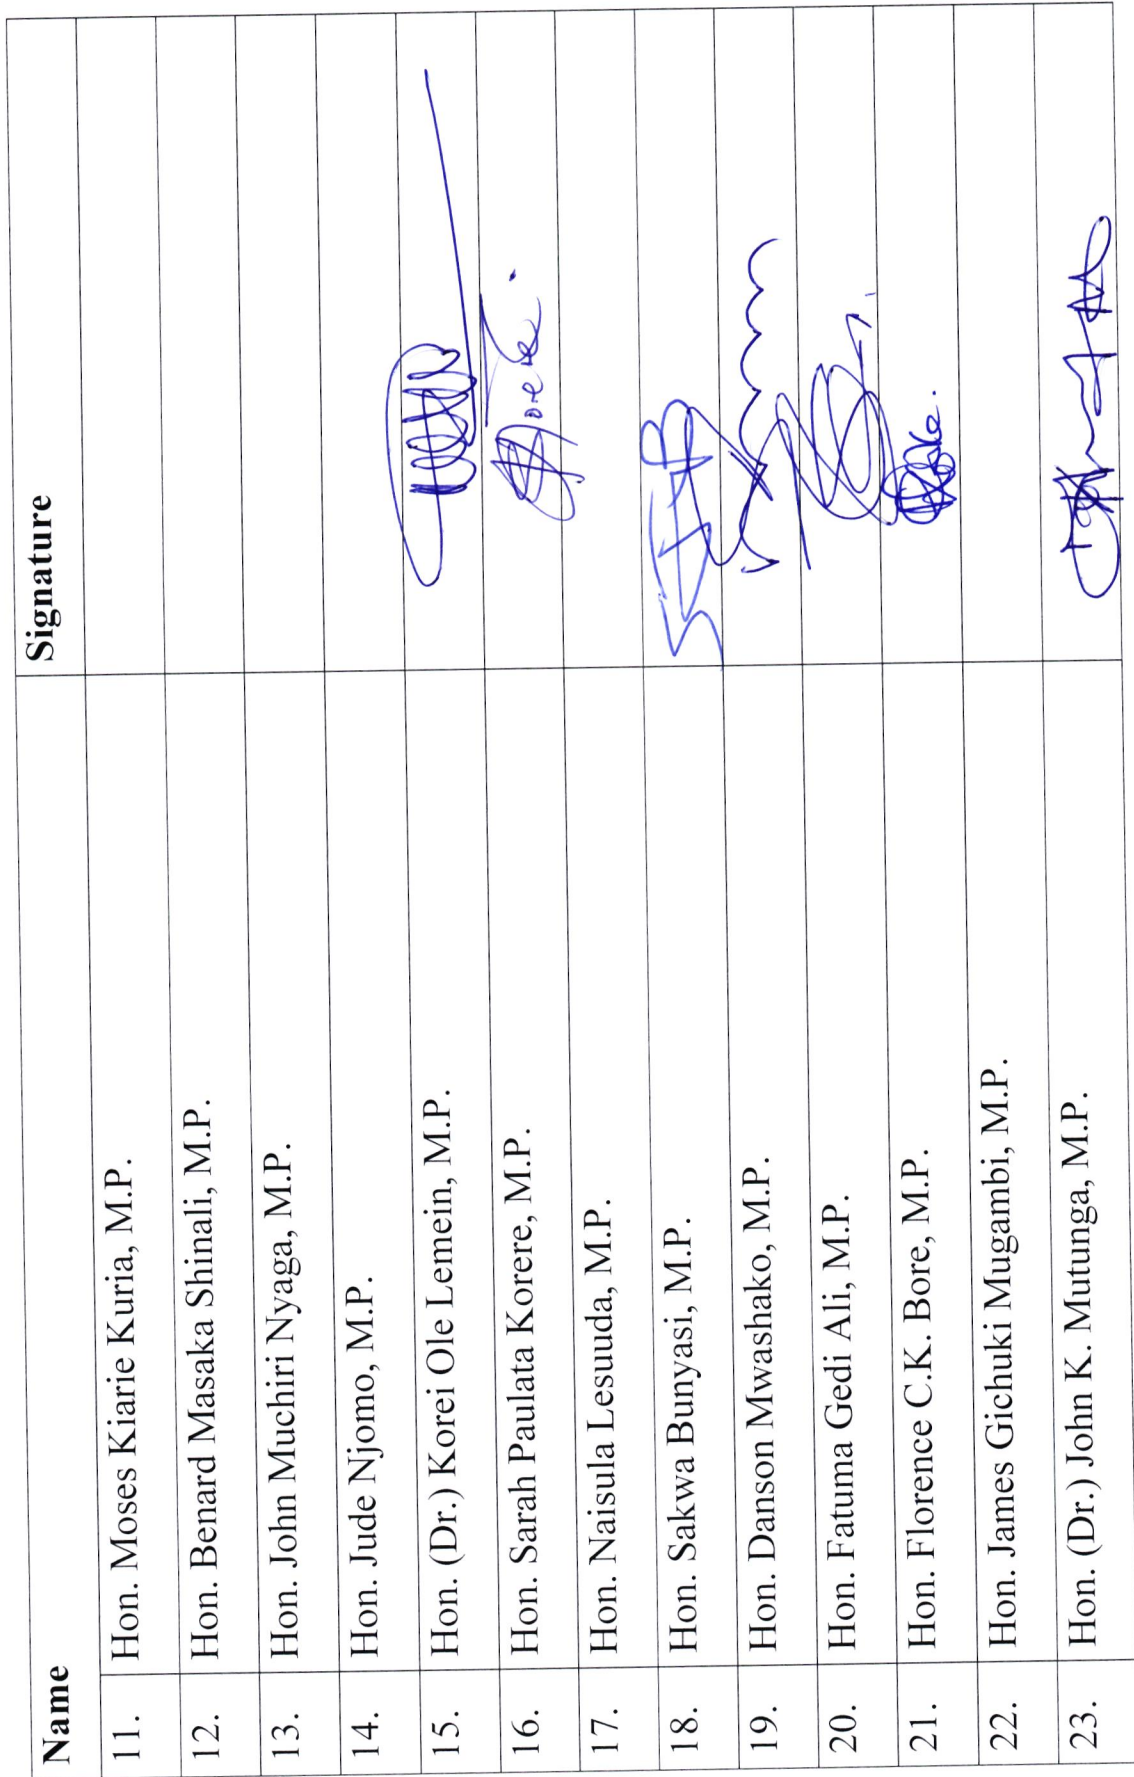 Name Signature
11. Hon. Moses Kiarie Kuria, M.P.
12. Hon. Benard Masaka Shinali, M.P.
13. Hon. John Muchiri Nyaga, M.P.
14. Hon. Jude Njomo, M.P.
15. Hon. (Dr.) Korei Ole Lemein, M.P.
16. Hon. Sarah Paulata Korere, M.P.
17. Hon. Naisula Lesuuda, M.P.
18. Hon. Sakwa Bunyasi, M.P.
19. Hon. Danson Mwashako, M.P.
20. Hon. Fatuma Gedi Ali, M.P.
21. Hon. Florence C.K. Bore, M.P.
22. Hon. James Gichuki Mugambi, M.P.
23. Hon. (Dr.) John K. Mutunga, M.P.